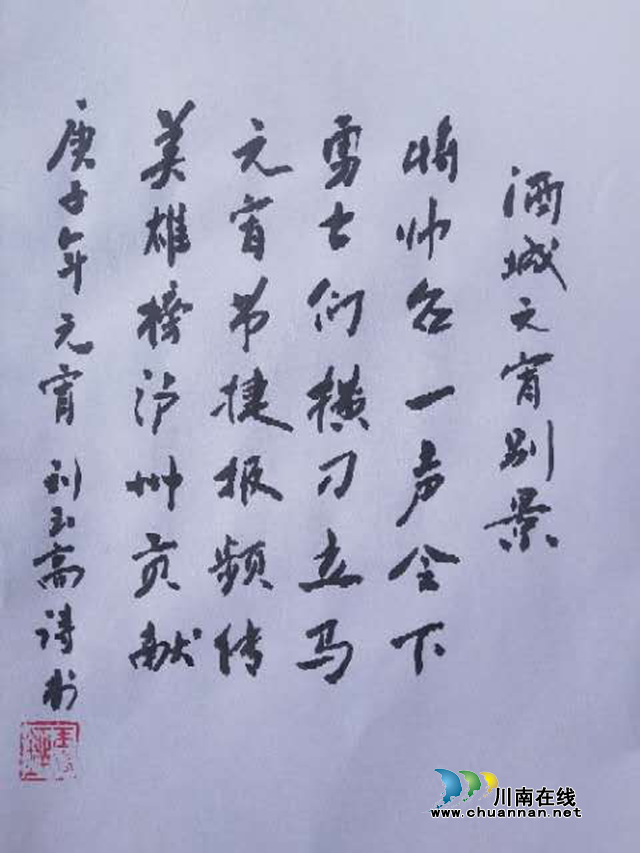 酒城元宵别景
将帅台一声令下
勇士们横刀立马
元宵节捷报频传
英雄榜泸州贡献
庚子年元宵 刘玉高诗书
川南在线
www.chuannan.net